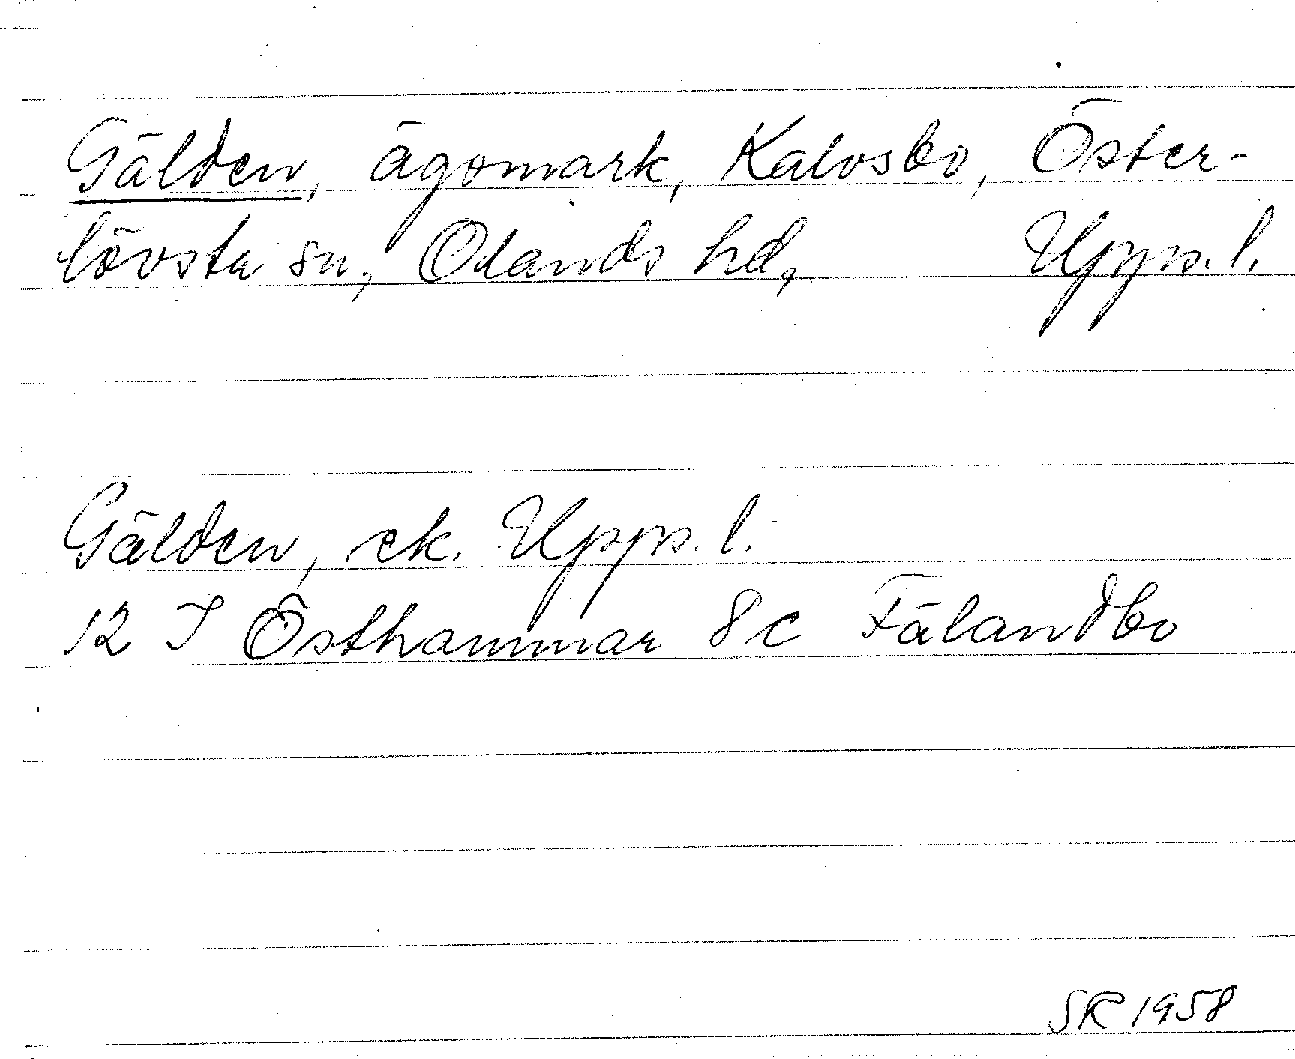 Gälden, ägomark, Kalvsbo, Öster-
lövsta sn, Olands hd, Upps.l.
Gälden, ek. Upps.l.
12 I Östhammar 8c Fälandbo
SR 1958